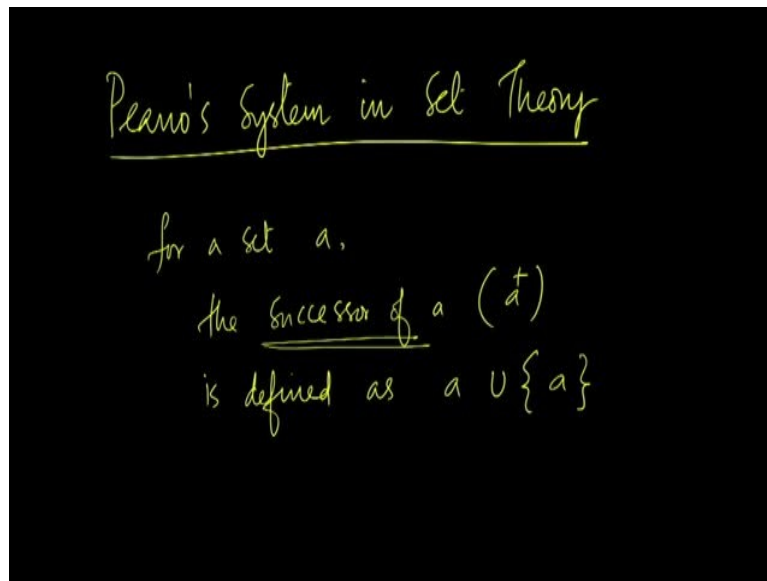 Peano's System in Set Theory
for a set a,
the successor of a (a⁺)
is defined as a ∪ {a}